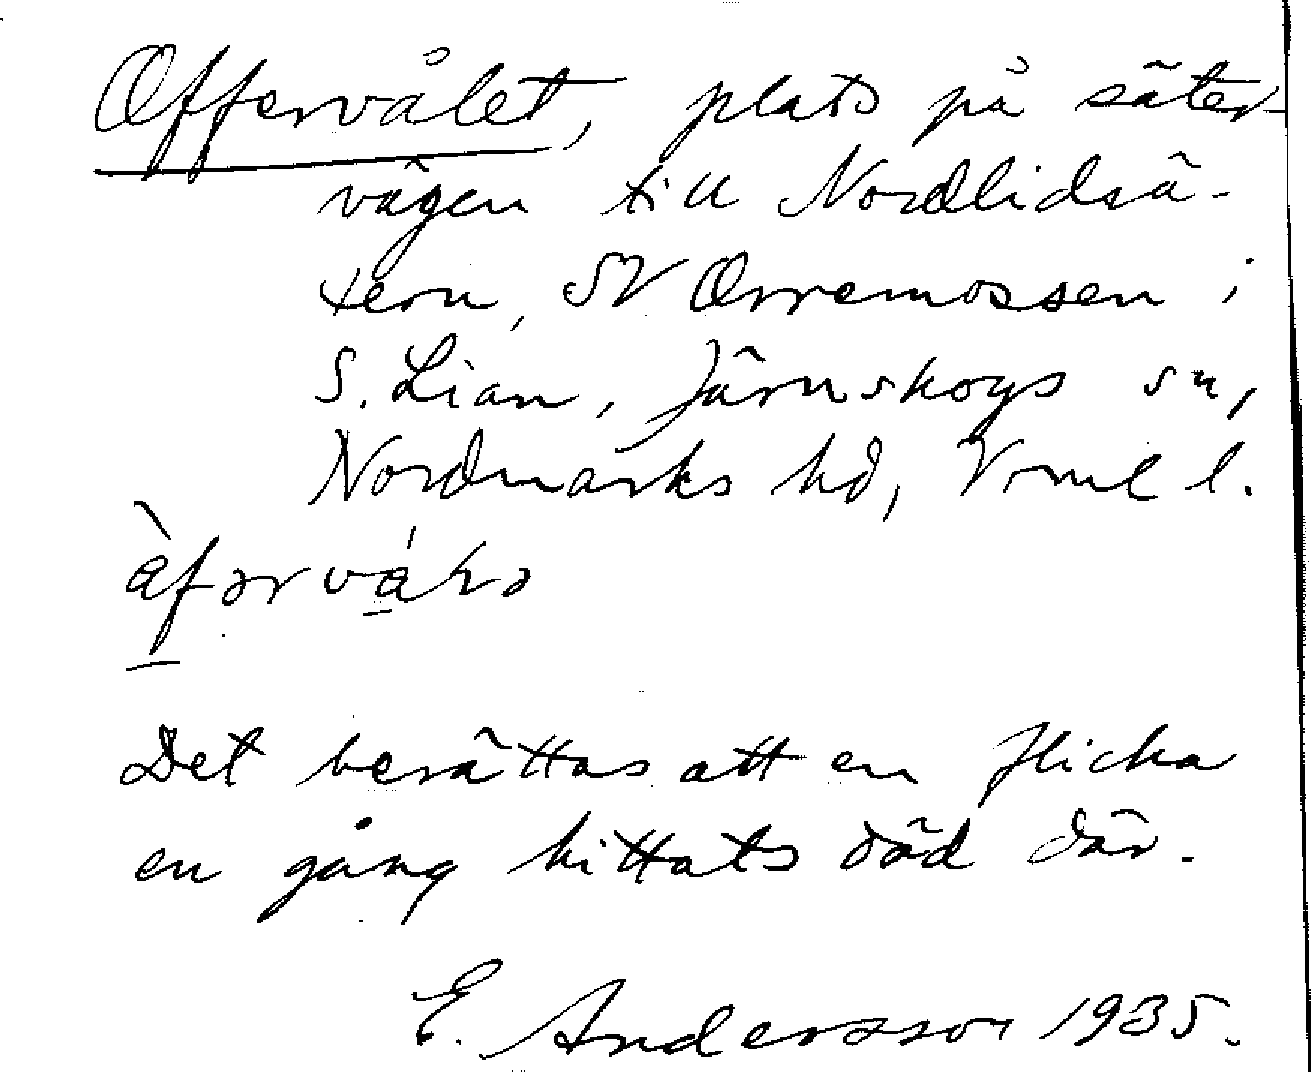 Offervålet, plats på säter-
vägen till Nordlidsä-
tern, SV Orremossen i
S. Lian, Järnskogs sn,
Nordmarks hd, Vrml l.
Det berättas att en flicka
en gång hittats död där.
E. Andersson 1935.